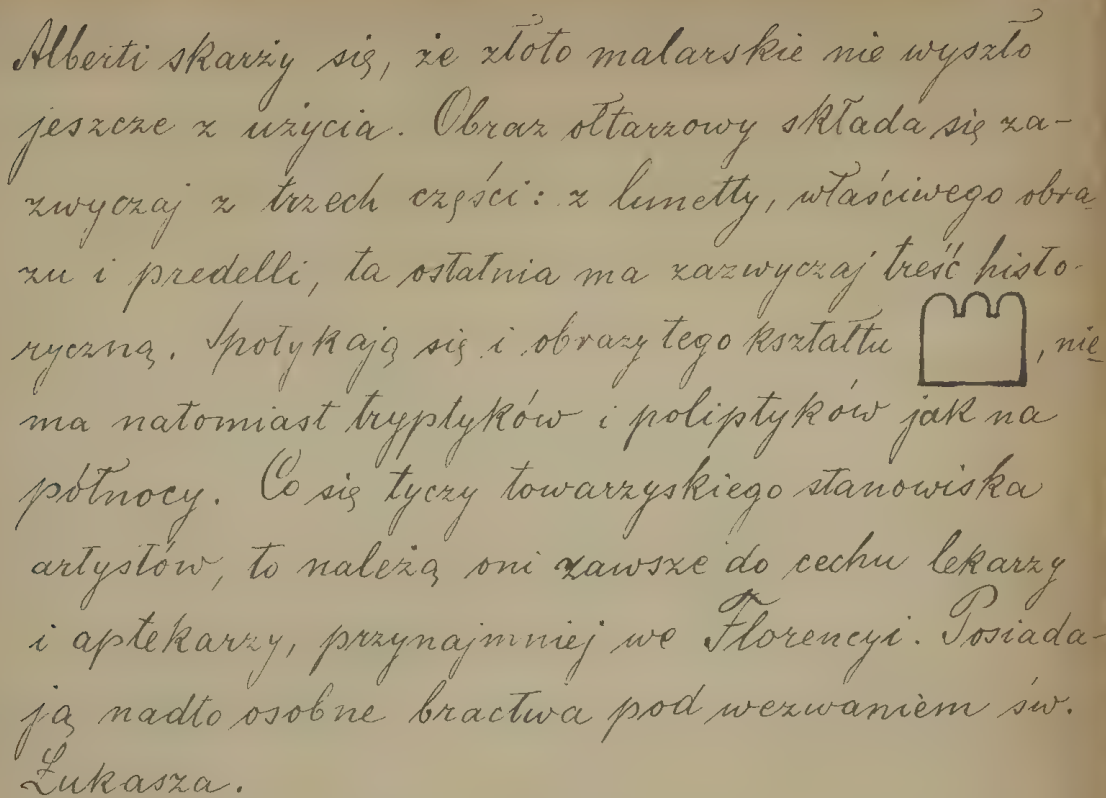 Alberti skarży się, że złoto malarskie nie wyszło
jeszcze z użycia. Obraz ołtarzowy składa się za-
zwyczaj z trzech części: z lunetty, właściwego obra-
zu i predelli, ta ostatnia ma zazwyczaj treść histo-
ryczną. Spotykają się i obrazy tego kształtu , nie
ma natomiast tryptyków i poliptyków jak na
północy. Co się tyczy towarzyskiego stanowiska
artystów, to należą oni zawsze do cechu lekarzy
i aptekarzy, przynajmniej we Florencyi. Posiada-
ją nadto osobne bractwa pod wezwaniem św.
Łukasza.